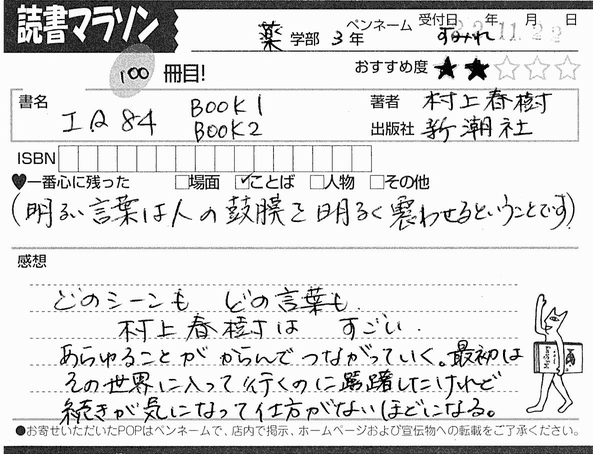 読書マラソン
薬 学部 3 年
ペンネーム すみれ
受付日 年 月 日
11.22
100 冊目!
おすすめ度 ★★☆☆☆
書名 IQ84 BOOK1
BOOK2
著者 村上春樹
出版社 新潮社
ISBN
♥一番心に残った □場面 ☑ことば □人物 □その他
(明るい言葉は人の鼓膜を明るく震わせるということです)
感想
どのシーンも どの言葉も
村上春樹は すごい.
あらゆることが からんでつながっていく。最初は
その世界に入って行くのに躊躇したけれど
続きが気になって仕方がないほどになる。
●お寄せいただいたPOPはペンネームで、店内で掲示、ホームページおよび宣伝物への転載をご了承ください。